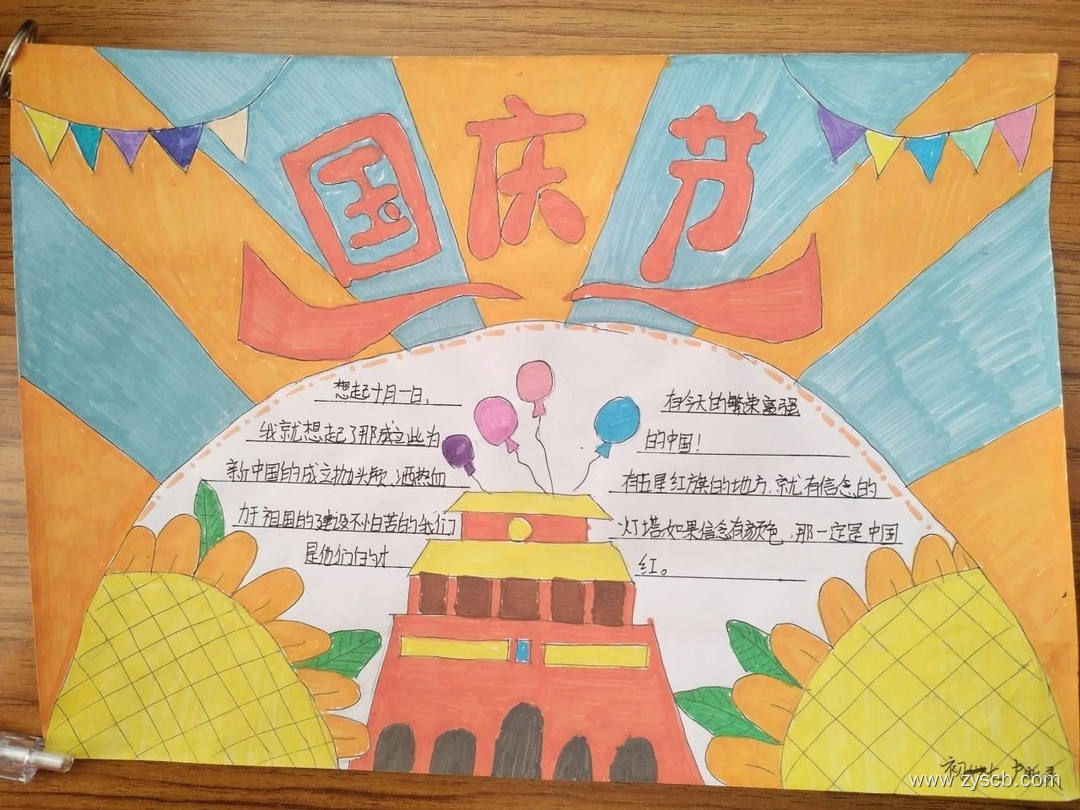 国庆节
想起十月一日,
我就想起了那成立此为
新中国的成立抛头颅,洒热血
力于祖国的建设不怕苦的我们
是他们的才
有今天的繁荣富强
的中国!
有五星红旗的地方,就有信念的
灯塔如果信念有颜色,那一定是中国
红。
www.zyscb.com